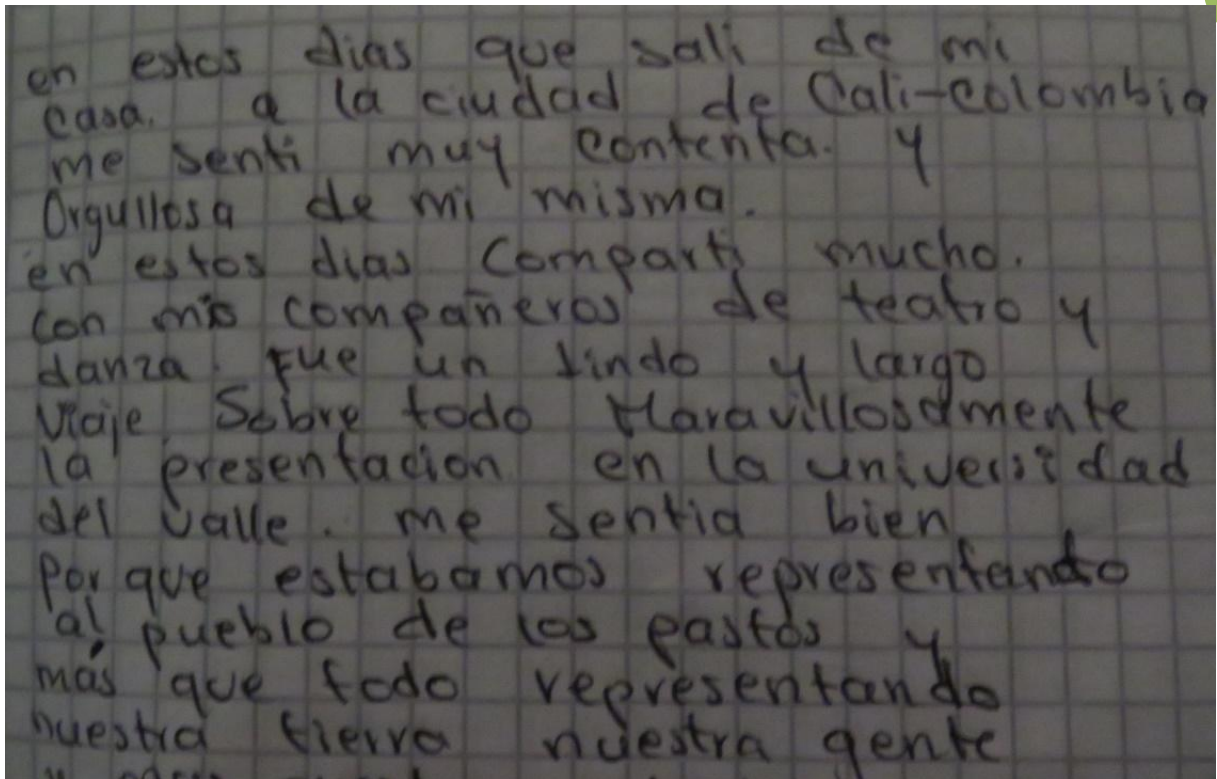 en estos dias que sali de mi
casa. a la ciudad de Cali-Colombia
me senti muy contenta. y
Orgullosa de mi misma.
en estos dias Comparti mucho.
con mis compañeros de teatro y
danza. Fue un lindo y largo
viaje. Sobre todo Maravillosamente
la presentacion en la universidad
del valle. me sentia bien
Por que estabamos representando
al pueblo de los pastos y
más que todo representando
nuestra tierra nuestra gente